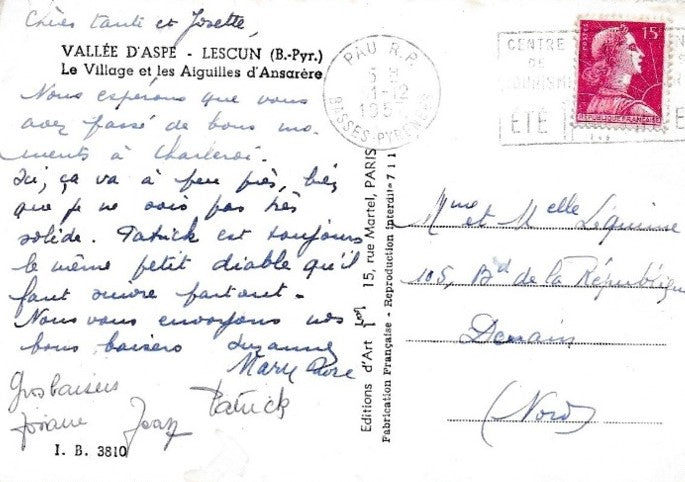 Chères tante et Josette,
VALLÉE D'ASPE - LESCUN (B.-Pyr.)
Le Village et les Aiguilles d'Ansarère
Nous espérons que vous
avez passé de bons mo-
ments à Charleroi.
Ici, ça va à peu près, bien
que je ne sois pas très
solide. Patrick est toujours
le même petit diable qu'il
faut suivre partout-
Nous vous envoyons nos
bons baisers Suzanne
Mary Rose
Gros baisers
Josiane Patrick
I. B. 3810
Editions d'Art 15, rue Martel, PARIS
Fabrication Française - Reproduction Interdite 711
PAU R.P.
1-12
BASSES-PYRENEES
CENTRE
DE
ÉTÉ
POSTES
15F
REPUBLIQUE FRANÇAISE
Mme et Melle Lequime
105, Bd de la République
Denain
(Nord)